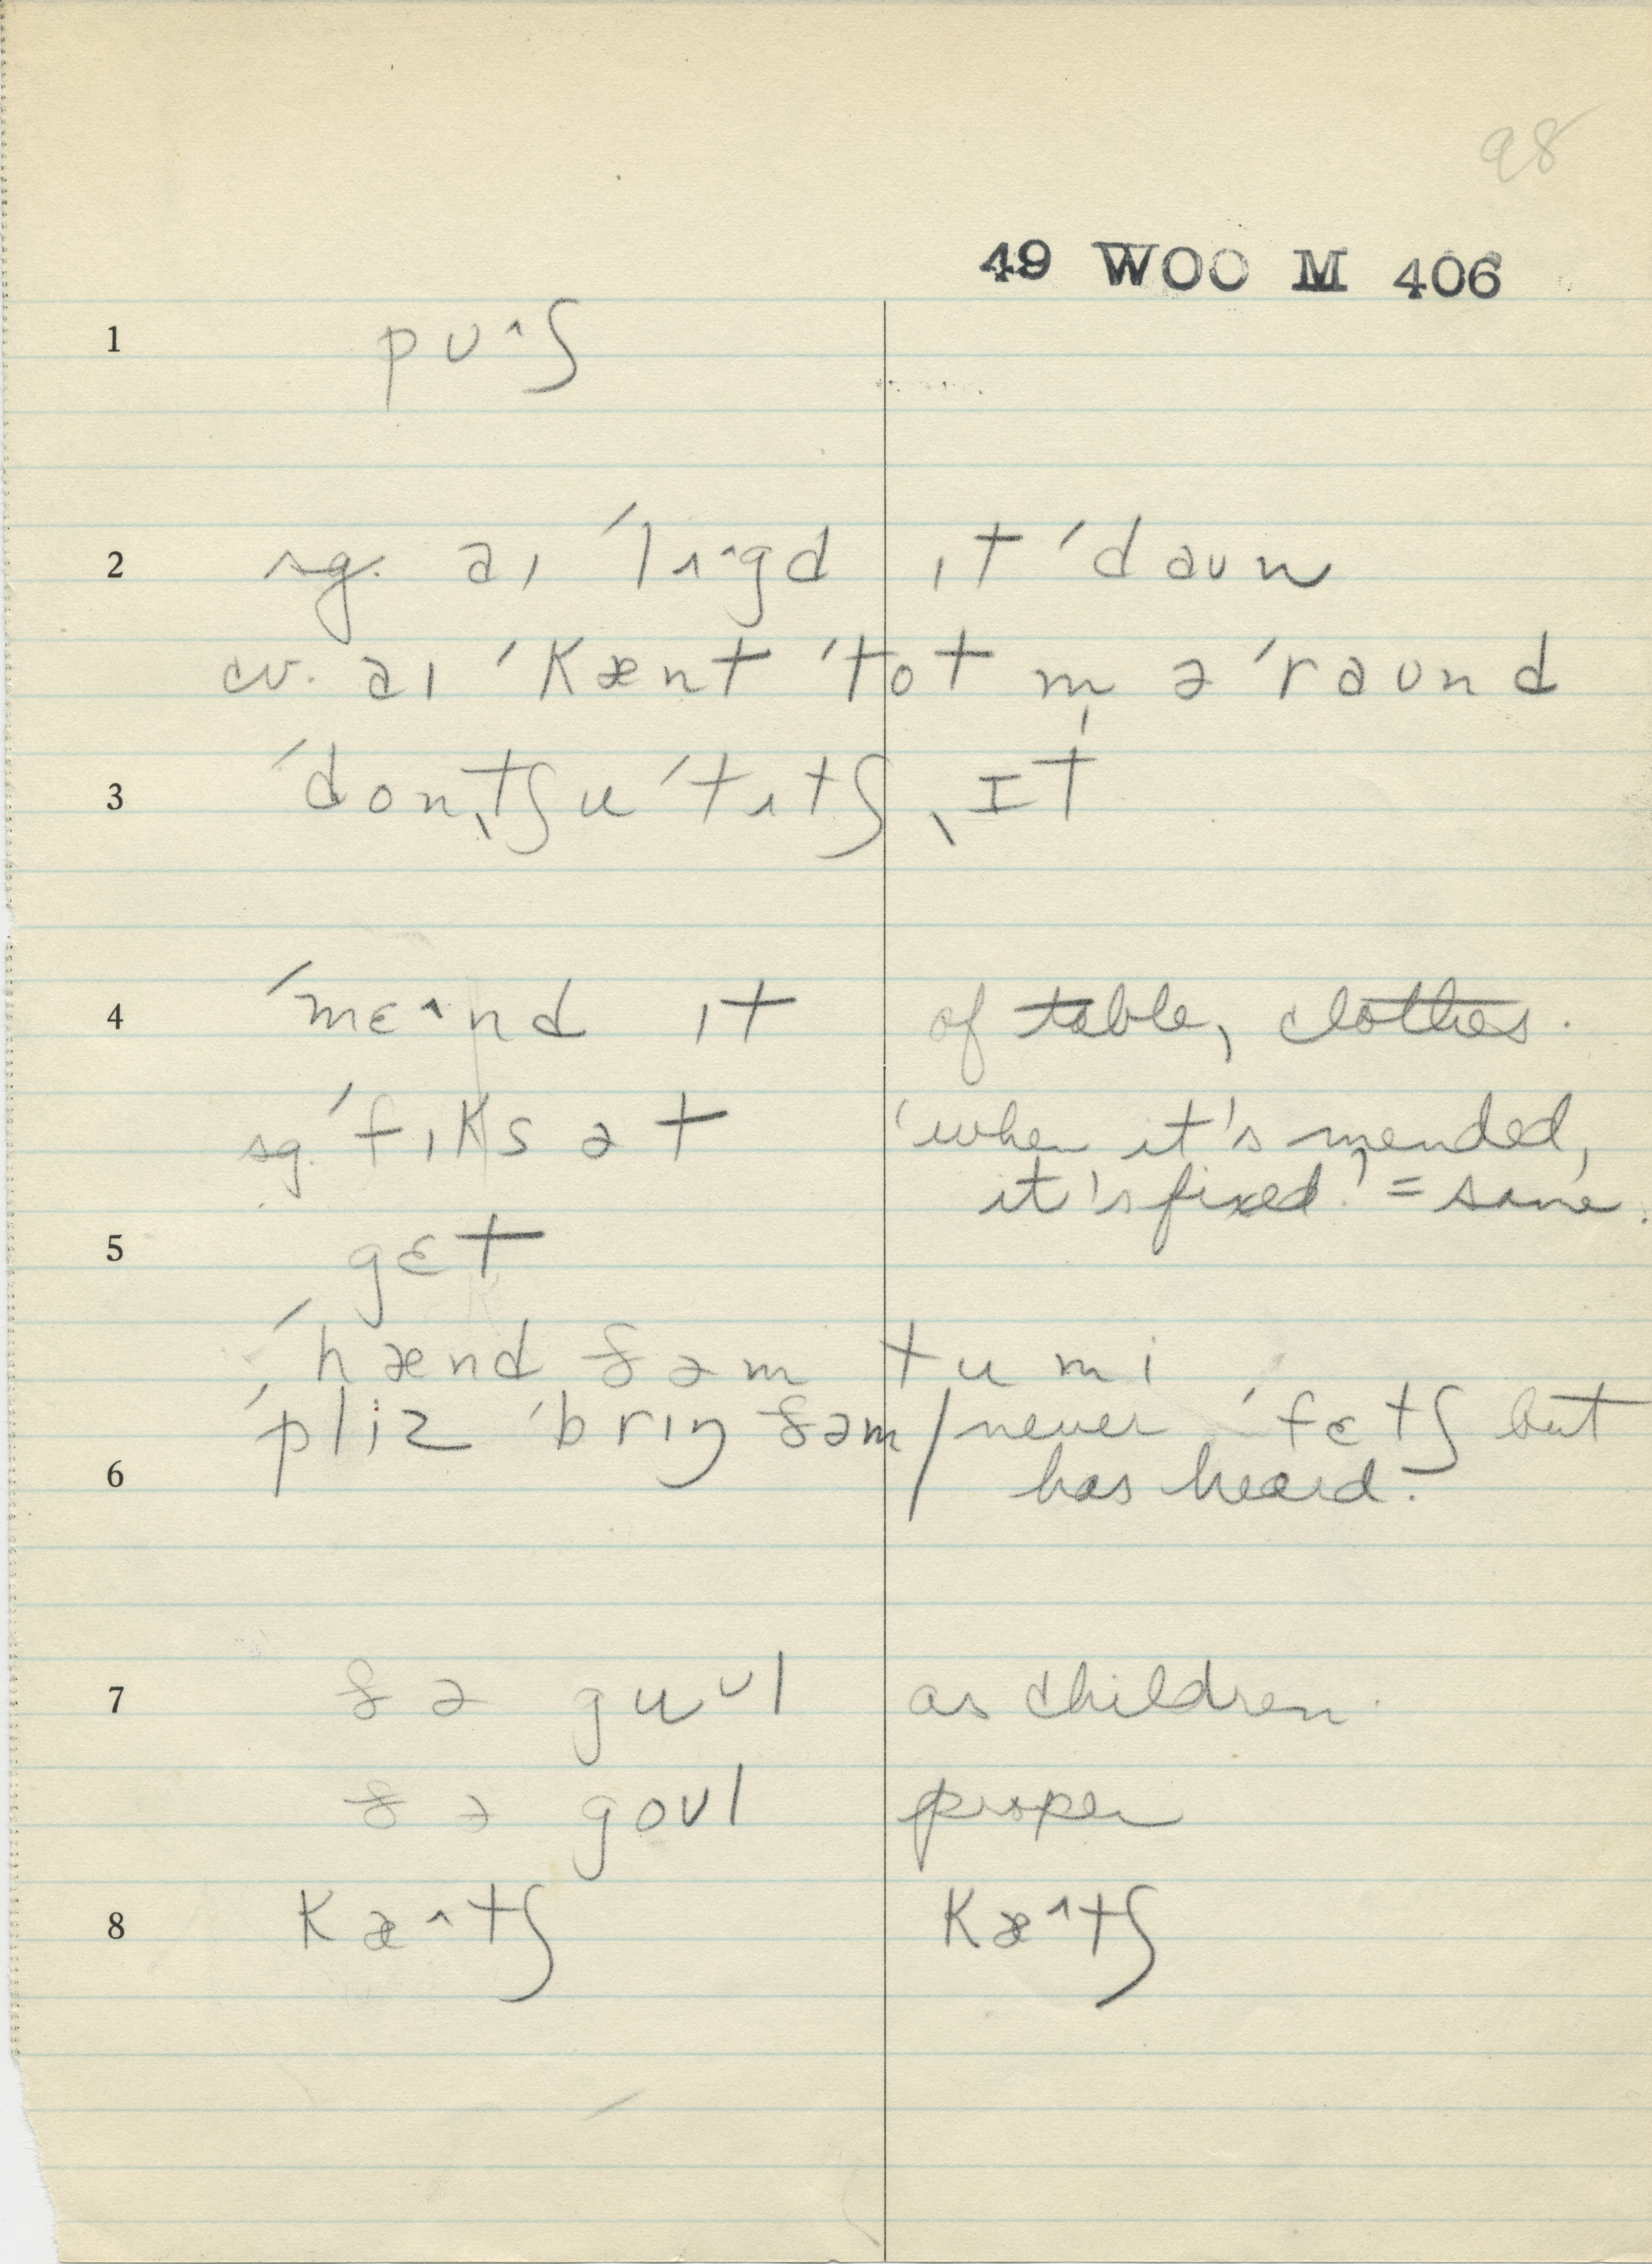 98
49 WOO M 406
1 pʊ^ʃ
2 sg. aɪ ˈlɪ^gd ɪt ˈdaʊn
cv. aɪ ˈkænt ˈtot m̩ əˈraʊnd
3 ˈdonˌtʃu ˈtʌtʃ ˌɪt
4 ˈmɛ^nd ɪt of table, clothes.
sg. ˈfɪks ət 'when it's mended,
it's fixed.' = same.
5 gɛt
ˈhænd ðəm tu mi
ˈpliz ˈbrɪŋ ðəm / never ˈfɛtʃ but
6 has heard.
7 ðə guᵘl as children.
ðə goʊl proper
8 kæ^tʃ kæ^tʃ